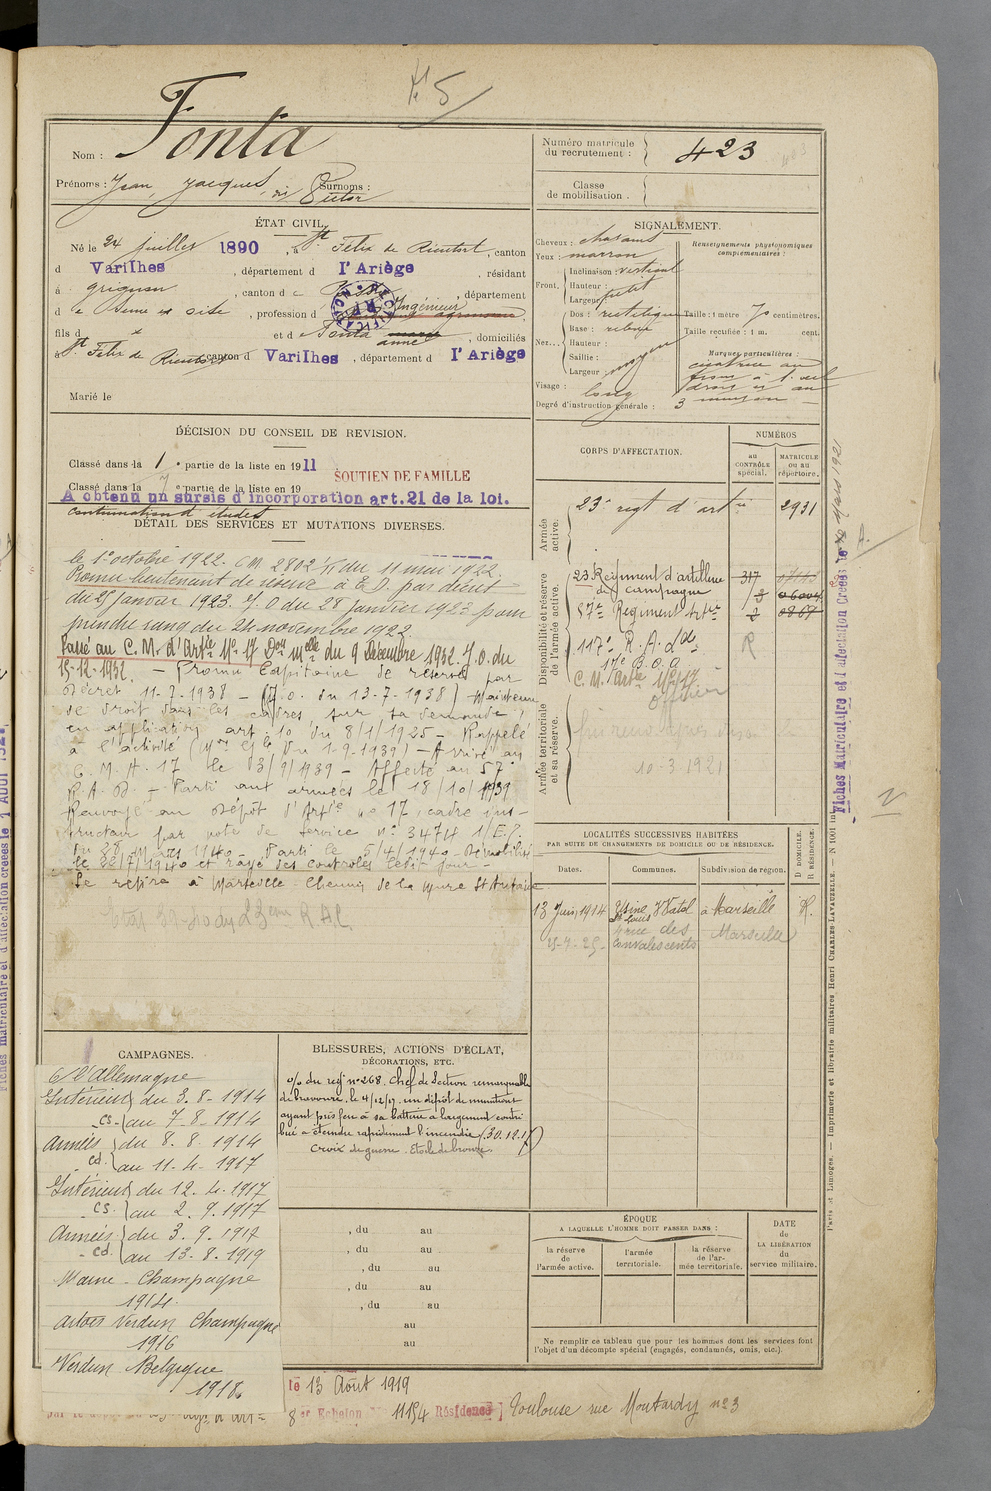 N° 5
Fonta
Nom :
Prénoms : Jean, Jacques, dit Victor Surnoms :
Numéro matricule du recrutement : 423
Classe de mobilisation :
ÉTAT CIVIL.
Né le 24 juillet 1890, à St Félix de Rieutort, canton
d Varilhes, département d l'Ariège, résidant
à Grignon, canton d e Poissy, département
d e Seine et Oise, profession d Ingénieur agronome,
fils d et d e Fonta marie anne, domiciliés
à St Félix de Rieutort canton d Varilhes, département d l'Ariège
Marié le
SIGNALEMENT.
Cheveux : chatains
Yeux : marron
Front, Inclinaison : vertical
Hauteur :
Largeur : petit
Nez... Dos : rectiligne
Base : relevée
Hauteur :
Saillie :
Largeur : moyen
Visage : long
Degré d'instruction générale : 3
Renseignements physionomiques complémentaires :
Taille : 1 mètre 70 centimètres.
Taille rectifiée : 1 m. cent.
Marques particulières :
cicatrice au
front à l'œil
droit et au
menton
DÉCISION DU CONSEIL DE REVISION.
Classé dans la 1e partie de la liste en 1911
SOUTIEN DE FAMILLE
Classé dans la 7e partie de la liste en 19
A obtenu un sursis d'incorporation art. 21 de la loi.
continuation d'études
DÉTAIL DES SERVICES ET MUTATIONS DIVERSES.
le 1er octobre 1922. CM 2802 1/11 du 11 mai 1922
Promu lieutenant de réserve à T.D. par décret
du 25 janvier 1923. J.O du 28 janvier 1923 pour
prendre rang du 24 novembre 1922
Passé au C. M. d'Artie N° 17 Don melle du 9 décembre 1932. J.O. du
15-12-1932. – Promu Capitaine de réserve par
décret 11-7-1938 – (J.O. du 13-7-1938) Maintenu
de droit dans les cadres sur sa demande,
en application art. 10 du 8/1/1925 – Rappelé
à l'activité (Mon Gle du 1-9-1939) – Arrivé au
C. M. A 17 le 3/9/1939 – Affecté au 57e
R.A.D. – Parti aux armées le 18/10/1939
Renvoyé au Dépôt d'Artie no 17, cadre ins-
tructeur par note de service no 3474 1/E.P.
du 28 Mars 1940. Parti le 5/4/1940 – Démobilisé
le 22/7/1940 et rayé des contrôles ledit jour –
Se retire à Marseille Chemin de la mure St Antoine
CORPS D'AFFECTATION.
NUMÉROS
AU CONTRÔLE spécial.
MATRICULE ou au répertoire.
Armée active.
23e regt d'artie 2931
Disponibilité et réserve de l'armée active.
23 Régiment d'artillerie de campagne 317
57e Régiment Artie 2 0867
117e R. A. Lde R
17e B.O.A
C. M. Artie N° 17
officier
Armée territoriale et sa réserve.
10-3-1921
LOCALITÉS SUCCESSIVES HABITÉES
PAR SUITE DE CHANGEMENTS DE DOMICILE OU DE RÉSIDENCE.
Dates. Communes. Subdivision de région. D DOMICILE. R RÉSIDENCE.
13 Juin 1914 Usine Vatol St Louis à Marseille R.
15-4-25 rue des Convalescents Marseille
CAMPAGNES.
C/ l'Allemagne
Intérieur du 3.8.1914
CS. au 7.8.1914
Armées du 8.8.1914
cd. au 11.4.1917
Intérieur du 12.4.1917
CS. au 2.9.1917
Armées du 3.9.1917
cd. au 13.8.1919
Marne - Champagne
1914.
Artois Verdun Champagne
1916
Verdun. Belgique
1918
BLESSURES, ACTIONS D'ÉCLAT,
DÉCORATIONS, ETC.
o/o du regt no 268. Chef de Section remarquable
de bravoure. le 4/12/17. un dépôt de munitions
ayant pris feu à sa batterie a largement contri
bué à éteindre rapidement l'incendie (30.12.17)
Croix de guerre. Etoile de bronze.
, du au
, du au
, du au
, du au
, du au
au
au
ÉPOQUE
A LAQUELLE L'HOMME DOIT PASSER DANS :
la réserve de l'armée active.
l'armée territoriale.
la réserve de l'armée territoriale.
DATE de LA LIBÉRATION du service militaire.
Ne remplir ce tableau que pour les hommes dont les services font
l'objet d'un décompte spécial (engagés, condamnés, omis, etc.).
le 13 Août 1919
8er Echelon 11154 Résidence Toulouse rue Moutardy no 3
Fiches Matriculaire et d'affectation Créées le
Paris et Limoges. — Imprimerie et librairie militaires Henri CHARLES-LAVAUZELLE. — N 1001